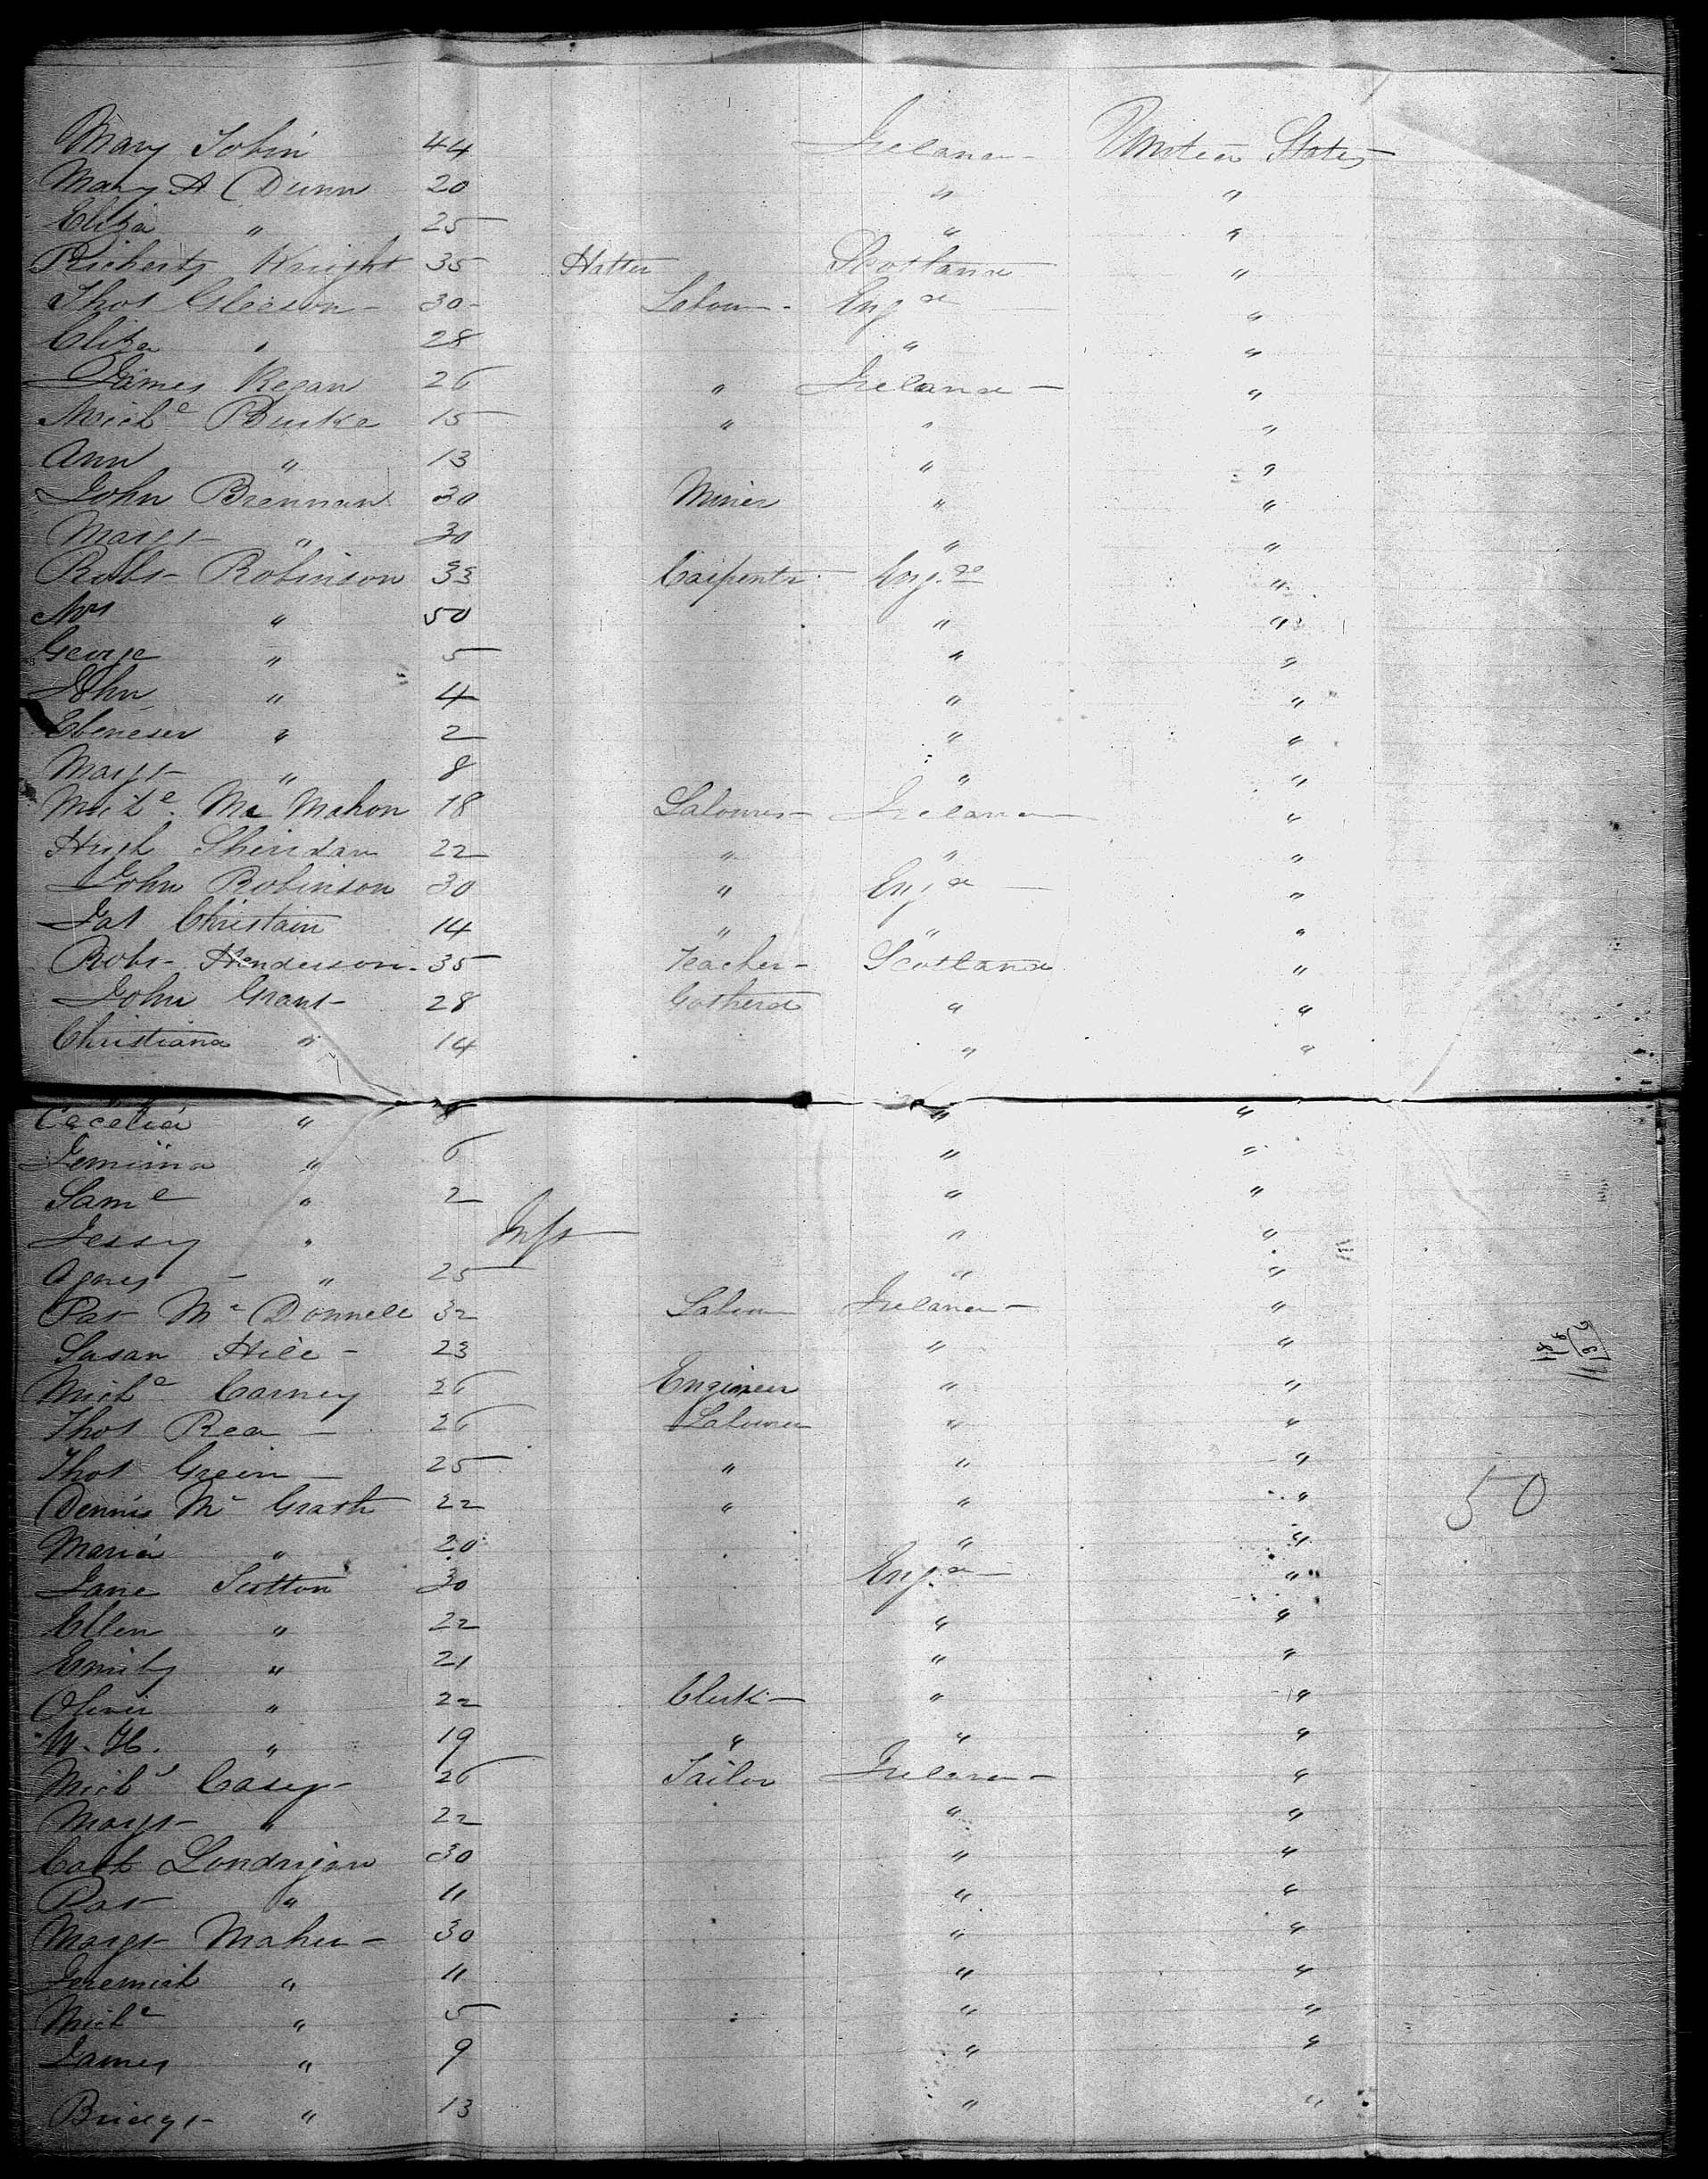 Mary Tobin 44 Ireland - United States
Mary A Dunn 20 " "
Eliza " 25 " "
Knight 35 Hatter Scotland "
Thos Gleeson - 30 - Labour - Eng d "
Eliza " 28 " "
James Regan 26 " Ireland - "
Michl Burke 15 " " "
Ann " 13 " "
John Brennan 30 Miner " "
Margt " 30 " "
Robt - Robinson 33 Carpentr Eng. d "
Mrs " 50 " "
George " 5 " "
John " 4 " "
Ebeneser " 2 " "
Margt " 8 " "
Michl. Mc Mahon 18 Labourer - Ireland "
Hugh Sheridan 22 " " "
John Robinson 30 " Eng d "
Jas Christain 14 " " "
Robt - Henderson - 35 Teacher - Scotland "
John Grant 28 " "
Christiana " 14 " "
Cecelia " 8 " "
Jemima " 6 " "
Saml " 2 " "
Jessy " Inft " "
Agnes - " 25 " "
Pat Mc Donnell 32 Labour Ireland - "
Susan Hill - 23 " "
Michl Carney 26 Engineer " "
Thos Rea - 26 Labourer " "
Thos Green - 25 " " "
Dennis Mc Grath 22 " " "
50
Maria " 20 " "
Jane Sutton 30 Eng. d - "
Ellen " 22 " "
Emily " 21 " "
Oliver " 22 Clerk - " "
W. H. " 19 " " "
Michl Casey - 26 Tailor Ireland - "
Margt " 22 " "
Cath Londrigan 30 " "
Pat " 11 " "
Margt Maher - 30 " "
Jeremiah " 11 " "
Michl " 5 " "
James " 9 " "
Bridgt " 13 " "